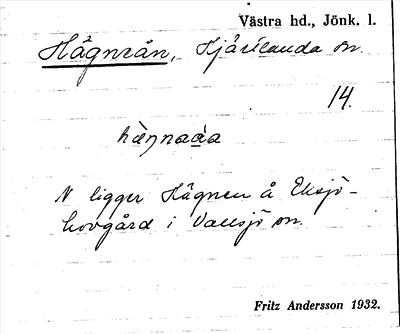 Västra hd., Jönk. l.
Hägnrån, Hjärtlanda sn.
14.
hàŋnaàa
N ligger Hägnen å Eksjö-
hovgård i Vallsjö sn.
Fritz Andersson 1932.